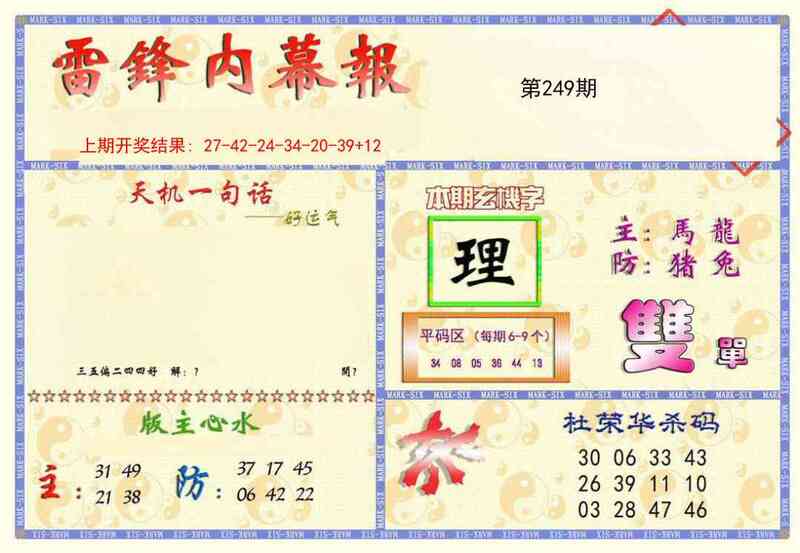 雷鋒内幕報
第249期
上期开奖结果: 27-42-24-34-20-39+12
天机一句话
——好运气
三五偏二四四好 解:? 開?
本期玄機字
理
主: 馬 龍
防: 豬 兔
平码区 (每期6-9个)
34 08 05 36 44 13
雙 單
版主心水
主: 31 49
21 38
防: 37 17 45
06 42 22
杜荣华杀码
30 06 33 43
26 39 11 10
03 28 47 46
MARK-SIX